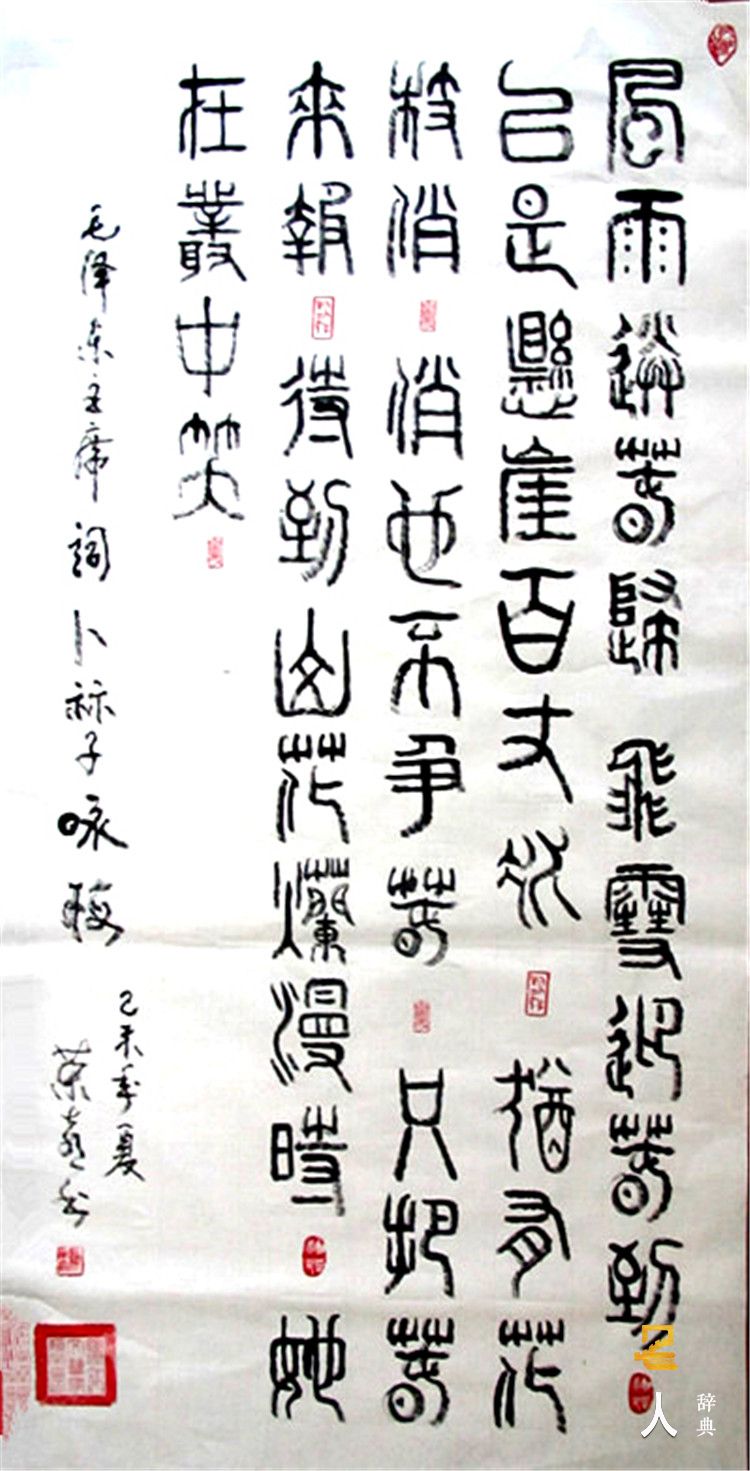 風雨送春歸 飛雪迎春到
已是懸崖百丈冰 猶有花
枝俏 俏也不爭春 只把春
來報 待到山花爛漫時 她
在叢中笑
毛泽东主席詞卜祘子咏梅
己未年夏
荣书
名人
辞典